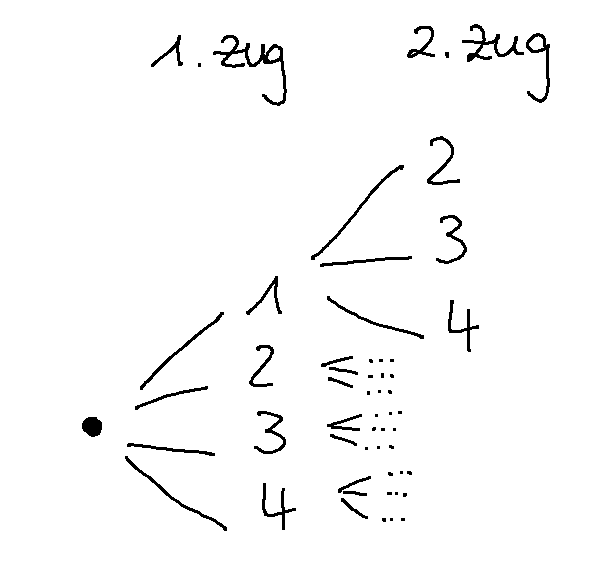 1. Zug 2. Zug
2
3
1
4
2 ...
...
...
3 ...
...
...
4 ...
...
...